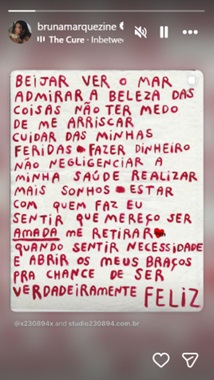 brunamarquezine
The Cure • Inbetwe
BEIJAR VER O MAR
ADMIRAR A BELEZA DAS
COISAS NÃO TER MEDO
DE ME ARRISCAR
CUIDAR DAS MINHAS
FERIDAS FAZER DINHEIRO
NÃO NEGLIGENCIAR A
MINHA SAÚDE REALIZAR
MAIS SONHOS ESTAR
COM QUEM FAZ EU
SENTIR QUE MEREÇO SER
AMADA ME RETIRAR
QUANDO SENTIR NECESSIDADE
E ABRIR OS MEUS BRAÇOS
PRA CHANCE DE SER
VERDADEIRAMENTE FELIZ
@x230894x and studio230894.com.br